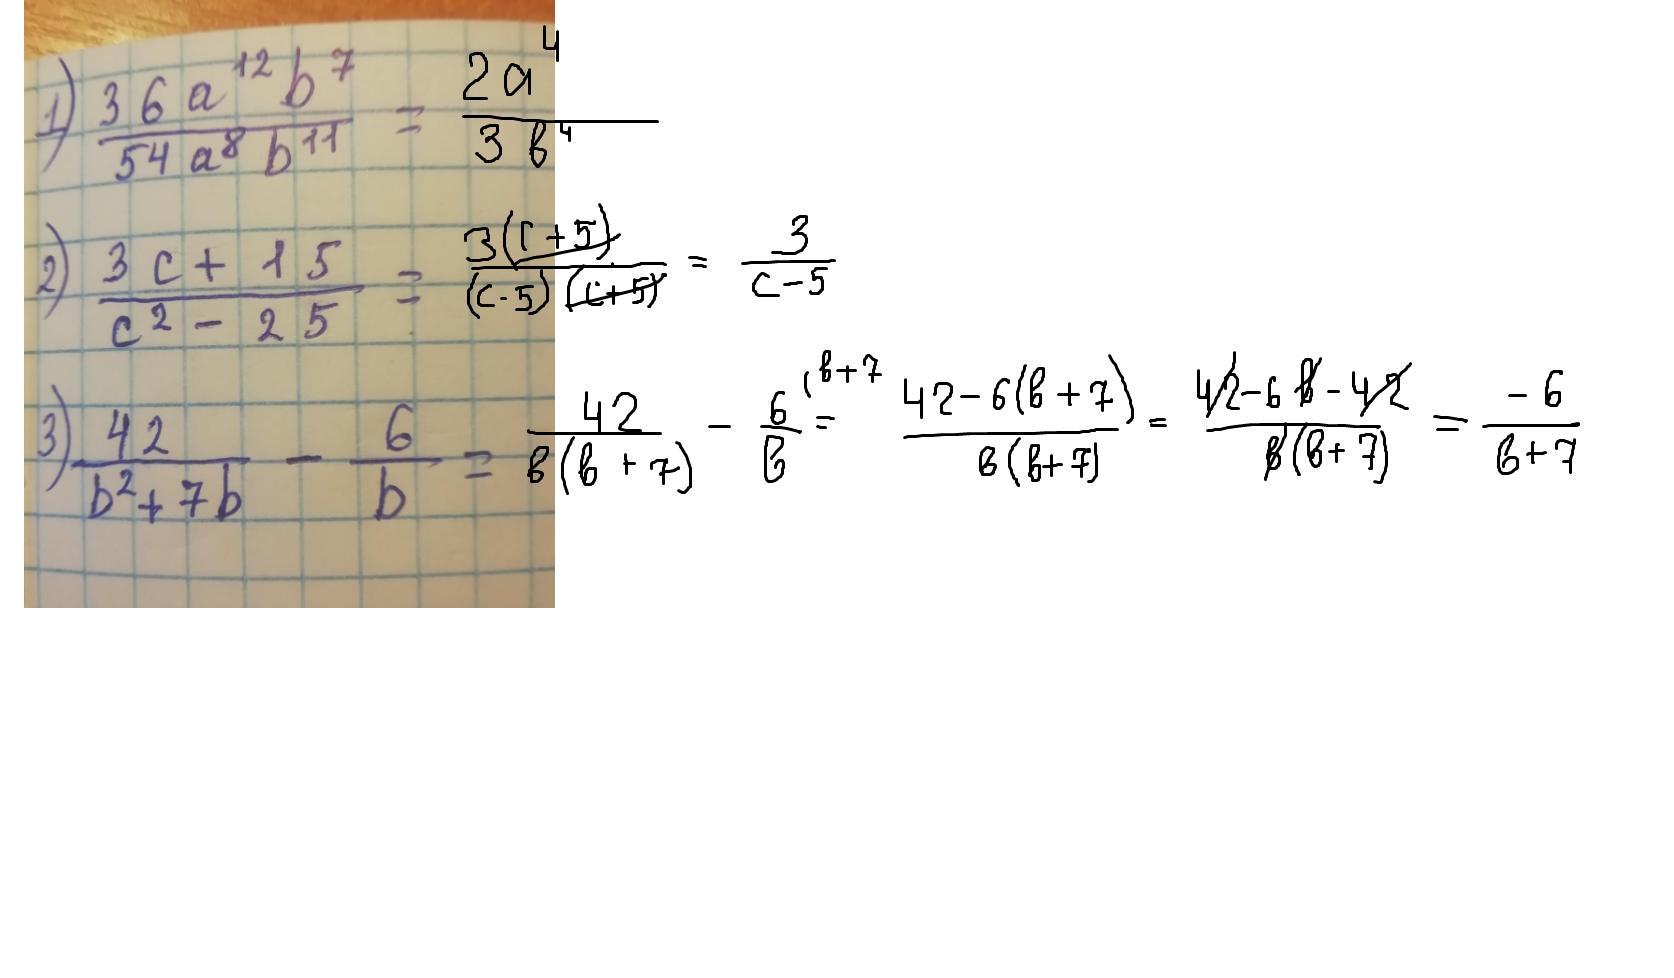 1) 36a¹²b⁷/54a⁸b¹¹ = 2a⁴/3в⁴
2) 3c+15/c²-25 = 3(c+5)/(c-5)(c+5) = 3/c-5
3) 42/b²+7b - 6/b = 42/в(в+7) - 6/в ⁽в+7 = 42-6(в+7)/в(в+7) = 42-6в-42/в(в+7) = -6/в+7